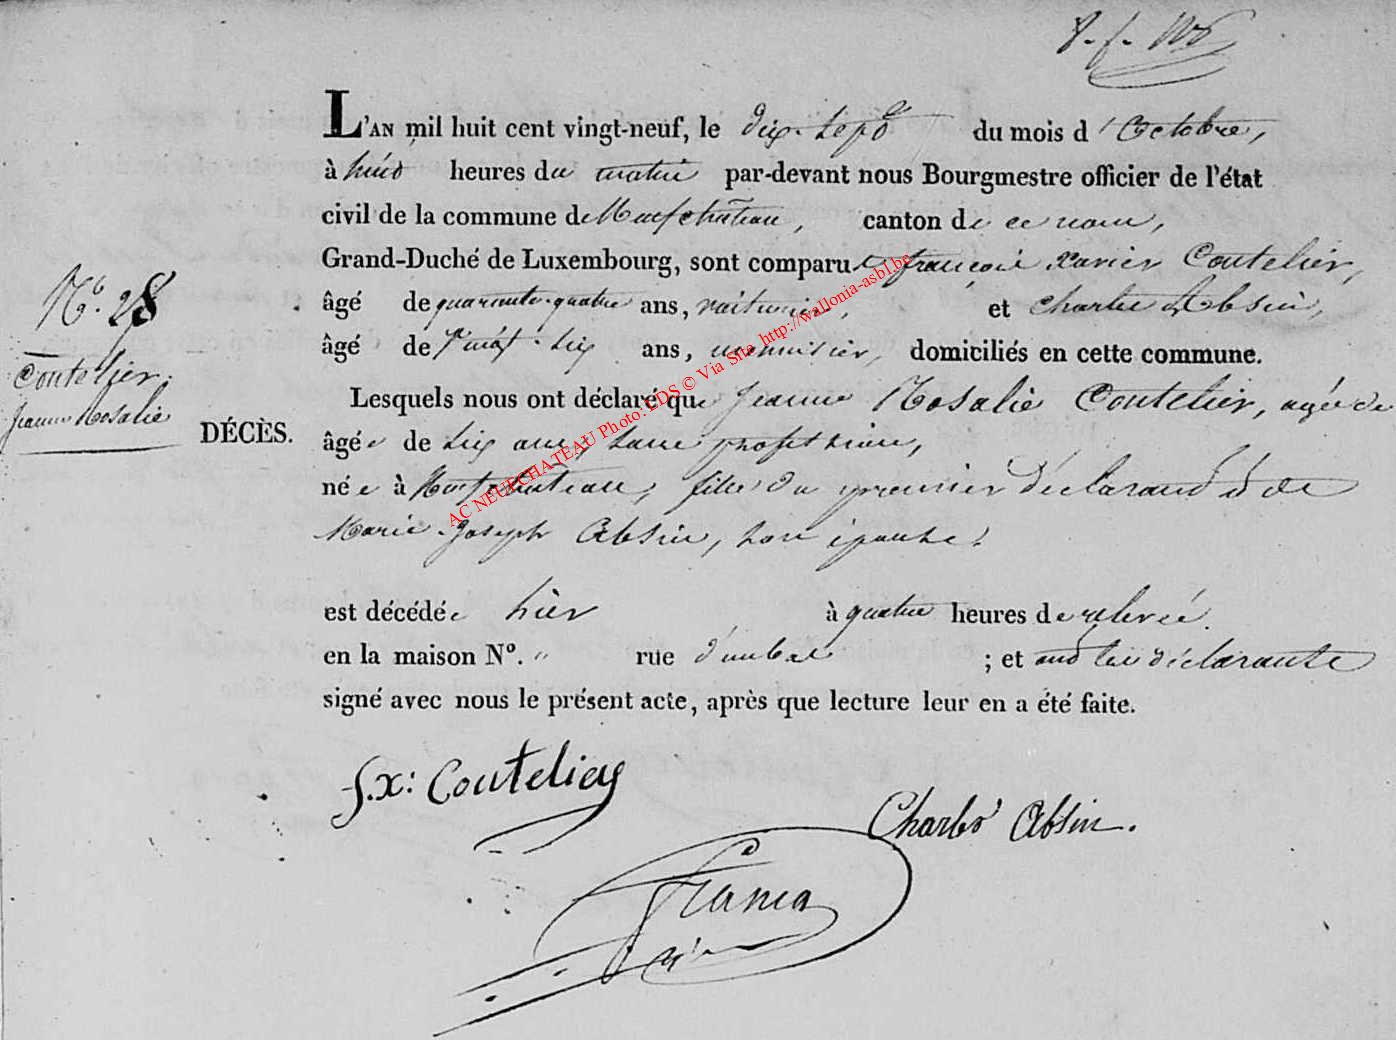 L'AN mil huit cent vingt-neuf, le dix-sept du mois d'Octobre,
à huit heures du matin par-devant nous Bourgmestre officier de l'état
civil de la commune de Neufchâteau, canton de ce nom,
Grand-Duché de Luxembourg, sont comparus françois Xavier Coutelier,
âgé de quarante-quatre ans, voiturier, et Charles Absin,
âgé de vingt-six ans, menuisier, domiciliés en cette commune.
N° 28
Coutelier
Jeanne Rosalie
DÉCÈS.
Lesquels nous ont déclaré que Jeanne Rosalie Coutelier, agée de
âgée de six ans, sans profession,
née à Neufchâteau, fille du premier déclarant et de
Marie Joseph Absin, son épouse.
est décédée hier à quatre heures de relevée.
en la maison N°. " rue ; et ont les déclarants
signé avec nous le présent acte, après que lecture leur en a été faite.
f.x: Coutelier
Charles Absin.
AC NEUFCHATEAU Photo: LDS © Via Site http://wallonia-asbl.be